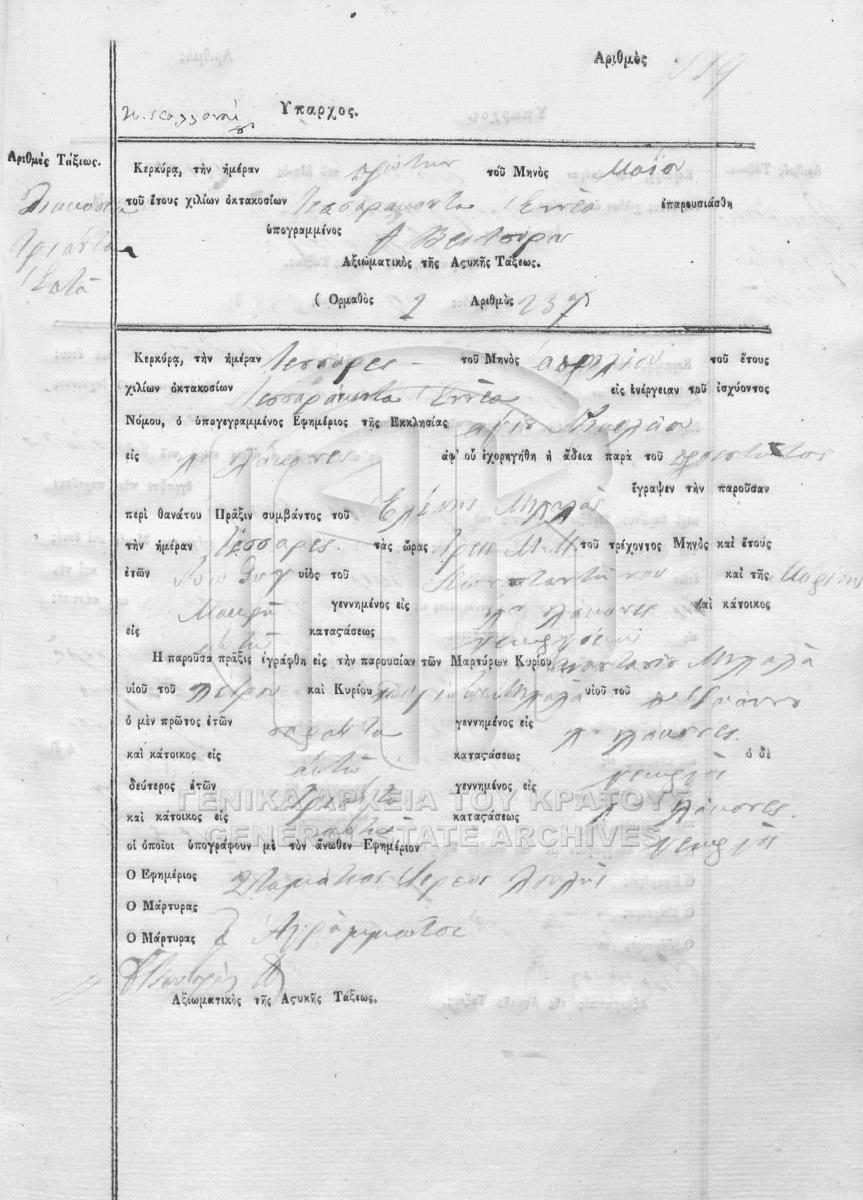 Αριθμὸς 119
Υπαρχος.
Αριθμὸς Τάξεως.
Διακόσια
τριάντα
Κερκύρα, τὴν ἡμέραν πρώτην τοῦ Μηνὸς Μαΐου
τοῦ ἔτους χιλίων ὀκτακοσίων τεσσαράκοντα Εννέα ἐπαρουσιάσθη
ὑπογραμμένος
Αξιωματικὸς τῆς Αςυκῆς Τάξεως.
( Ορμαθὸς 2 Αριθμὸς 237 )
Κερκύρα, τὴν ἡμέραν τέσσαρες τοῦ Μηνὸς απριλίου τοῦ ἔτους
χιλίων ὀκτακοσίων τεσσαράκοντα Εννέα εἰς ἐνέργειαν τοῦ ἰσχύοντος
Νόμου, ὁ ὑπογεγραμμένος Εφημέριος τῆς Εκκλησίας αγίου Νικολάου
εἰς λάκονες ἀφ' οὗ ἐχορηγήθη ἡ ἄδεια παρὰ τοῦ προεστῶτος
ἔγραψεν τὴν παροῦσαν
περὶ θανάτου Πρᾶξιν συμβάντος τοῦ Ελένης Μιχαλάς
τὴν ἡμέραν τέσσαρες τὰς ὥρας τρεις Μ.Μ. τοῦ τρέχοντος Μηνὸς καὶ ἔτους
ἐτῶν υἱὸς τοῦ Κωνσταντήνου καὶ τῆς Μαρίης
Μακρή γεννημένος εἰς λάκονες καὶ κάτοικος
εἰς αυτώ καταςάσεως
Η παροῦσα πρᾶξις ἐγράφθη εἰς τὴν παρουσίαν τῶν Μαρτύρων Κυρίου αναστασίου Μιχαλά
υἱοῦ τοῦ πέτρου καὶ Κυρίου Μιχαλά υἱοῦ τοῦ Ιωάννου
ὁ μὲν πρῶτος ἐτῶν σαράντα γεννημένος εἰς λάκονες
καὶ κάτοικος εἰς αυτώ καταςάσεως γεωργός ὁ δὲ
δεύτερος ἐτῶν τριάντα γεννημένος εἰς λάκονες.
καὶ κάτοικος εἰς αυτώ καταςάσεως γεωργός
οἱ ὁποῖοι ὑπογράφουν μὲ τὸν ἄνωθεν Εφημέριον
Ο Εφημέριος Σταμάτιος Ιερεύς Λουλης
Ο Μάρτυρας
Ο Μάρτυρας Αγράμματοι
Αξιωματικὸς τῆς Αςυκῆς Τάξεως.
ΓΕΝΙΚΑ ΑΡΧΕΙΑ ΤΟΥ ΚΡΑΤΟΥΣ
GENERAL STATE ARCHIVES